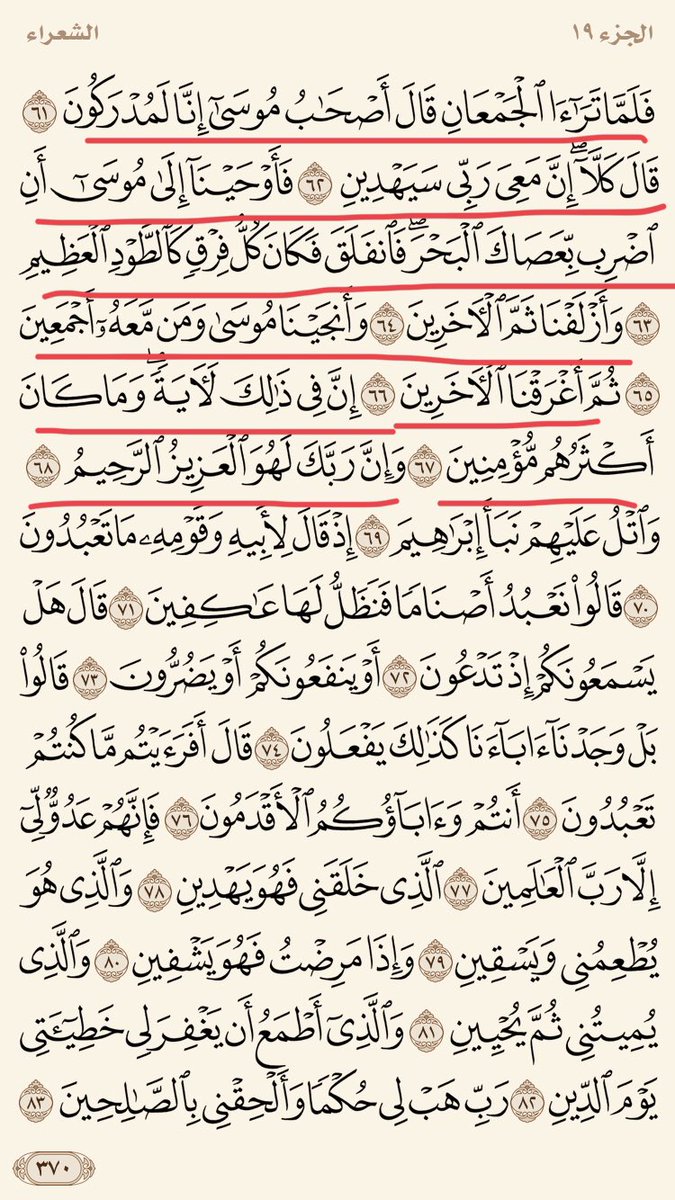 الجزء ١٩ الشعراء
فَلَمَّا تَرَٰٓءَا ٱلْجَمْعَانِ قَالَ أَصْحَٰبُ مُوسَىٰٓ إِنَّا لَمُدْرَكُونَ ٦١
قَالَ كَلَّآ ۖ إِنَّ مَعِىَ رَبِّى سَيَهْدِينِ ٦٢ فَأَوْحَيْنَآ إِلَىٰ مُوسَىٰٓ أَنِ
ٱضْرِب بِّعَصَاكَ ٱلْبَحْرَ ۖ فَٱنفَلَقَ فَكَانَ كُلُّ فِرْقٍ كَٱلطَّوْدِ ٱلْعَظِيمِ
٦٣ وَأَزْلَفْنَا ثَمَّ ٱلْءَاخَرِينَ ٦٤ وَأَنجَيْنَا مُوسَىٰ وَمَن مَّعَهُۥٓ أَجْمَعِينَ
٦٥ ثُمَّ أَغْرَقْنَا ٱلْءَاخَرِينَ ٦٦ إِنَّ فِى ذَٰلِكَ لَءَايَةً ۖ وَمَا كَانَ
أَكْثَرُهُم مُّؤْمِنِينَ ٦٧ وَإِنَّ رَبَّكَ لَهُوَ ٱلْعَزِيزُ ٱلرَّحِيمُ ٦٨
وَٱتْلُ عَلَيْهِمْ نَبَأَ إِبْرَٰهِيمَ ٦٩ إِذْ قَالَ لِأَبِيهِ وَقَوْمِهِۦ مَا تَعْبُدُونَ
٧٠ قَالُوا۟ نَعْبُدُ أَصْنَامًا فَنَظَلُّ لَهَا عَٰكِفِينَ ٧١ قَالَ هَلْ
يَسْمَعُونَكُمْ إِذْ تَدْعُونَ ٧٢ أَوْ يَنفَعُونَكُمْ أَوْ يَضُرُّونَ ٧٣ قَالُوا۟
بَلْ وَجَدْنَآ ءَابَآءَنَا كَذَٰلِكَ يَفْعَلُونَ ٧٤ قَالَ أَفَرَءَيْتُم مَّا كُنتُمْ
تَعْبُدُونَ ٧٥ أَنتُمْ وَءَابَآؤُكُمُ ٱلْأَقْدَمُونَ ٧٦ فَإِنَّهُمْ عَدُوٌّ لِّىٓ
إِلَّا رَبَّ ٱلْعَٰلَمِينَ ٧٧ ٱلَّذِى خَلَقَنِى فَهُوَ يَهْدِينِ ٧٨ وَٱلَّذِى هُوَ
يُطْعِمُنِى وَيَسْقِينِ ٧٩ وَإِذَا مَرِضْتُ فَهُوَ يَشْفِينِ ٨٠ وَٱلَّذِى
يُمِيتُنِى ثُمَّ يُحْيِينِ ٨١ وَٱلَّذِىٓ أَطْمَعُ أَن يَغْفِرَ لِى خَطِيٓـَٔتِى
يَوْمَ ٱلدِّينِ ٨٢ رَبِّ هَبْ لِى حُكْمًا وَأَلْحِقْنِى بِٱلصَّٰلِحِينَ ٨٣
٣٧٠